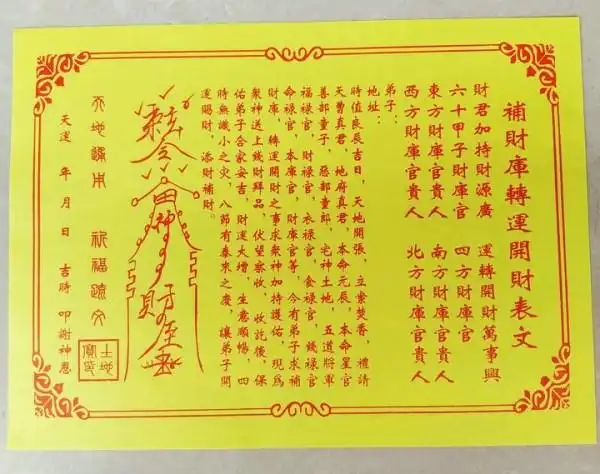 補財庫轉運開財表文
財君加持財源廣 運轉開財萬事興
六十甲子財庫官 四方財庫官
東方財庫官貴人 南方財庫官貴人
西方財庫官貴人 北方財庫官貴人
弟子:
地址:
時值良辰吉日,天地開張,立案焚香,禮請
天曹真君、地府真君、本命元辰、本命星官
善部童子、惡部童郎、宅神土地、五道將軍
福祿官、財祿官、衣祿官、食祿官、錢祿官
命祿官、本庫官、財庫官等,今有弟子求補
財庫,轉運開財之事求衆神加持護佑,現為
衆神送上錢財拜品,伏望察收,收訖後,保
佑弟子合家安吉,財運大增,生意順暢,四
時無讖小之灾,八節有泰來之慶,讓弟子開
運賜財,添財補財。
天地通用 祈福疏文
土地寶印
天運 年 月 日 吉時 叩謝神恩